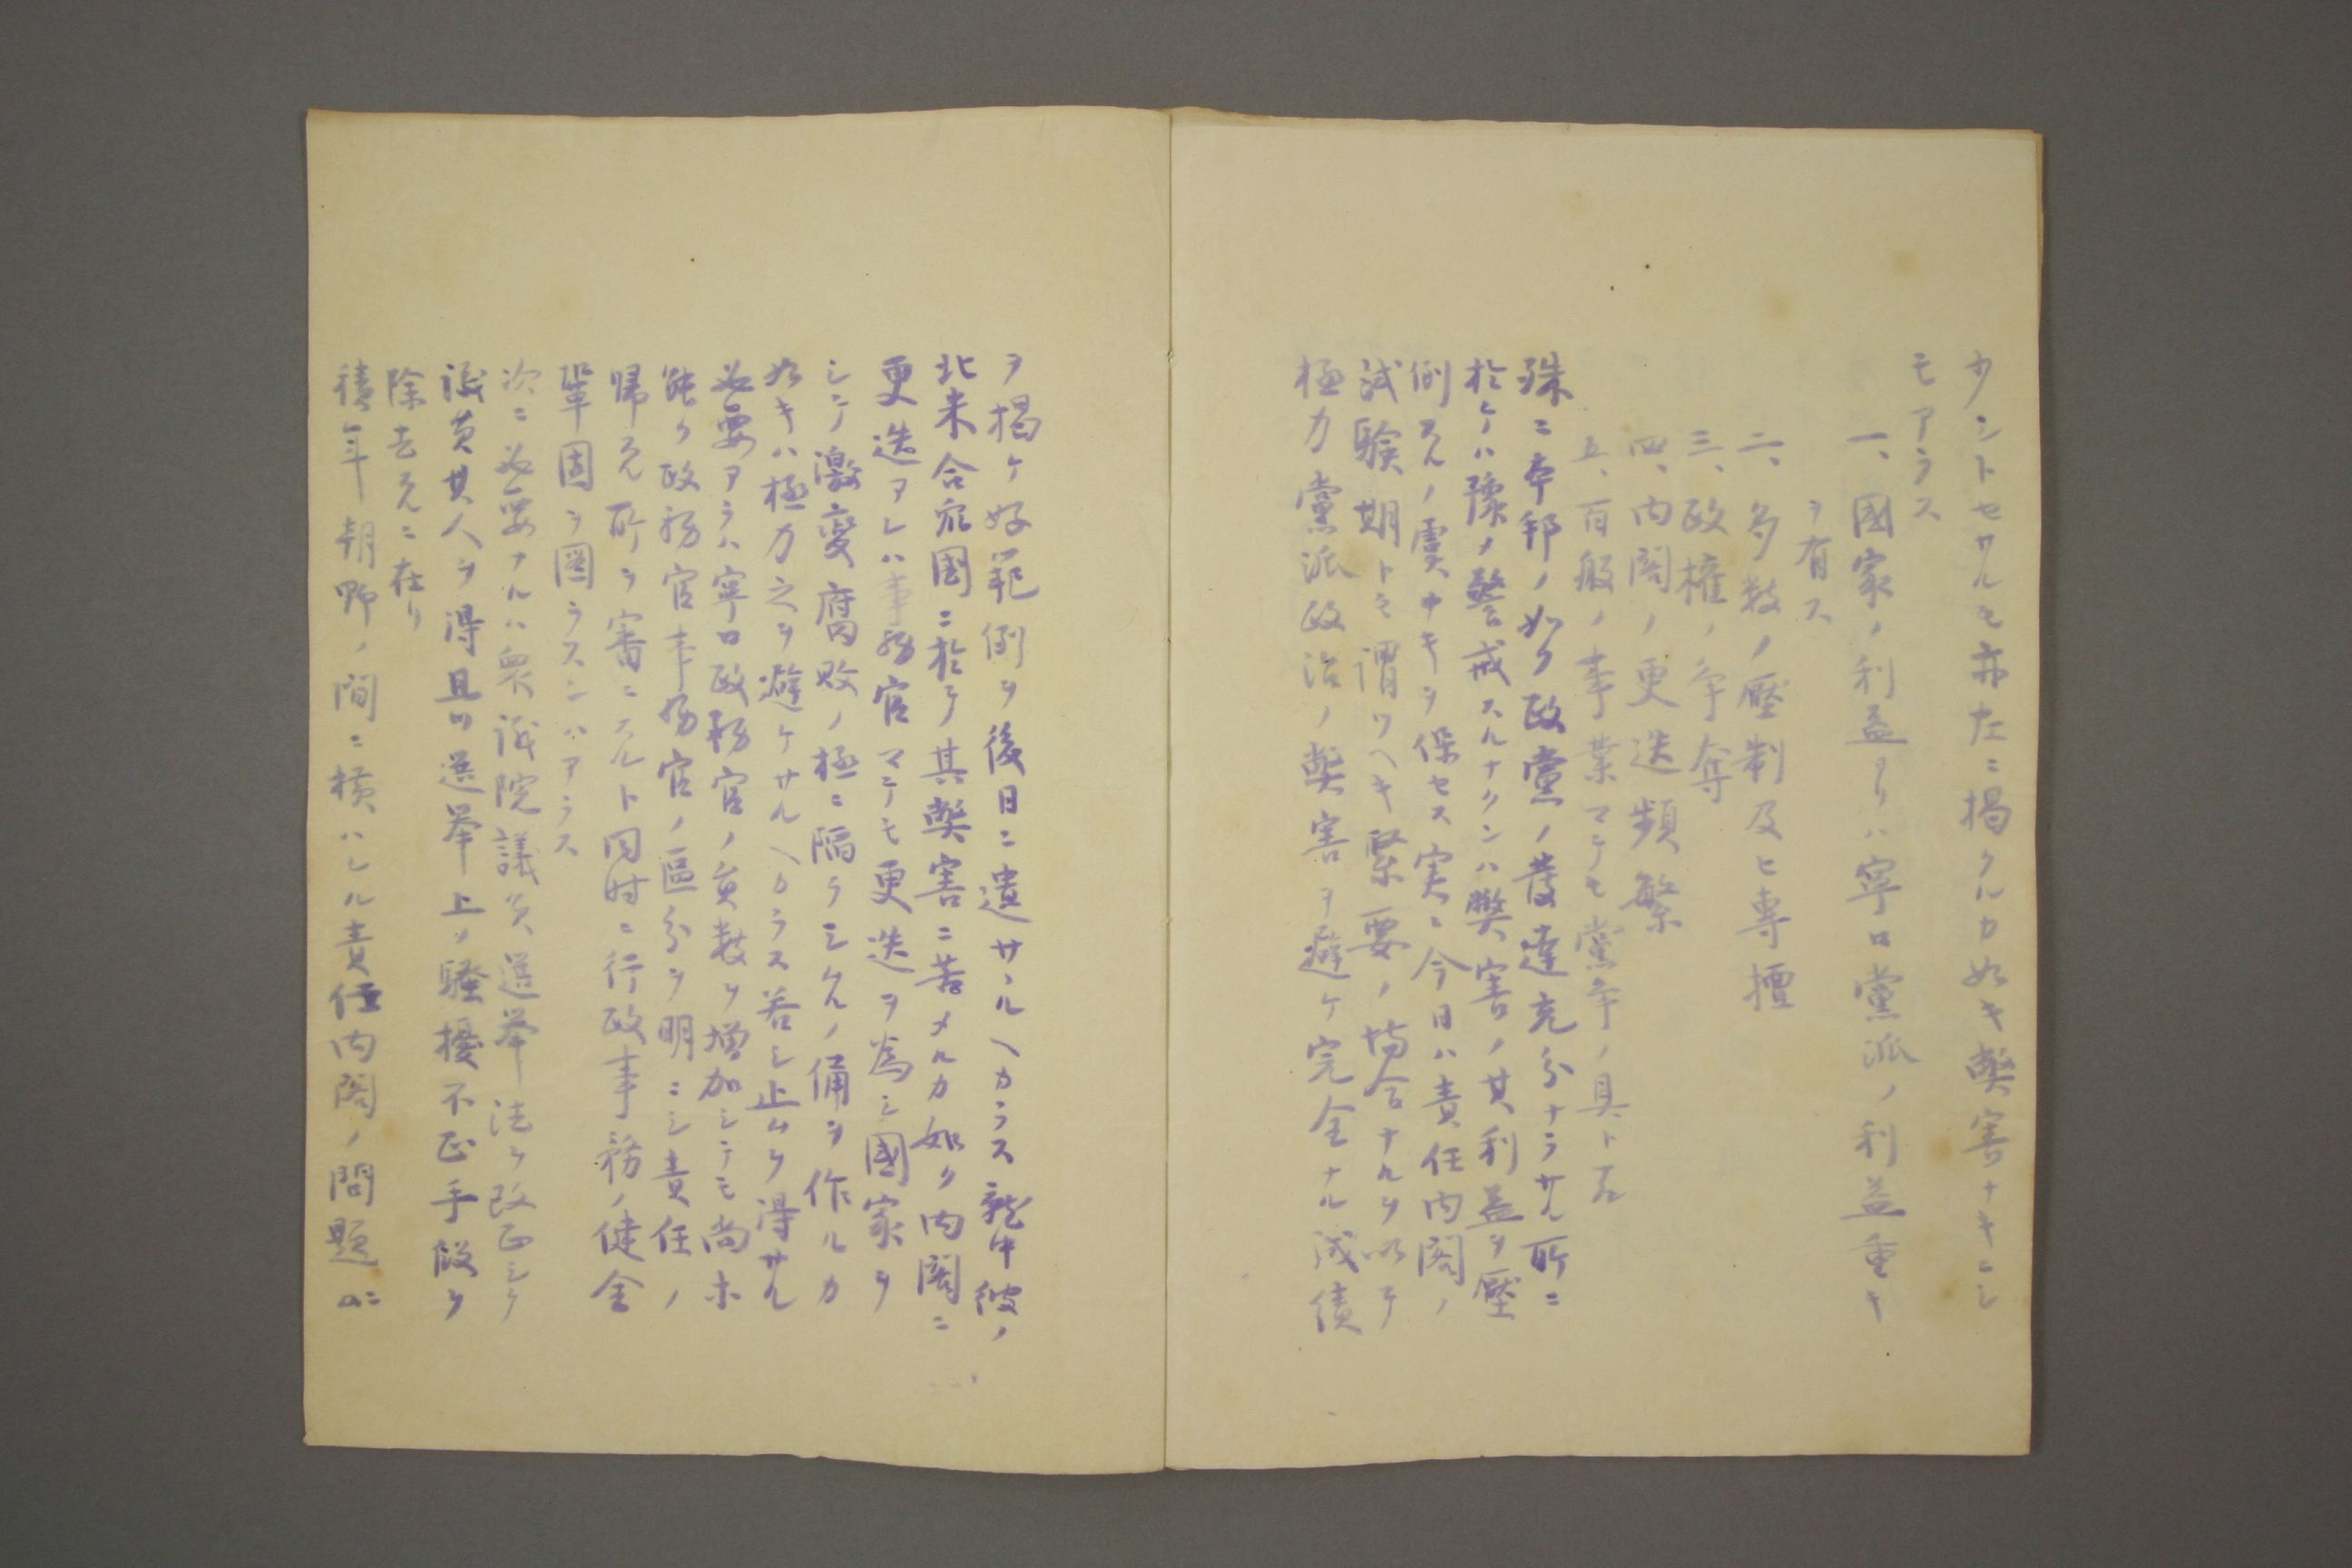 少シトセサルモ亦左ニ揭クルカ如キ獘害ナキニシ
モアラス
一、國家ノ利益ヨリハ寧ロ黨派ノ利益重キ
ヲ有ス
二、多数ノ壓制及ヒ専擅
三、政權ノ争奪
四、内閣ノ更迭頻繁
五、百般ノ事業マテモ黨争ノ具トス
殊ニ本邦ノ如ク政黨ノ發達充分ナラサル所ニ
於テハ豫メ警戒スルナクンハ獘害ノ其利益ヲ壓
倒スルノ虞ナキヲ保セス実ニ今日ハ責任内閣ノ
試驗期トモ謂ツヘキ緊要ノ場合ナルヲ以テ
極力黨派政治ノ獘害ヲ避ケ完全ナル成績
ヲ揭ケ好範例ヲ後日ニ遺サヽルヘカラス就中彼ノ
北米合衆國ニ於テ其獘害ニ苦メルカ如ク内閣ニ
更迭アレハ事務官マテモ更迭ヲ為シ國家ヲ
シテ激變腐敗ノ極ニ陥ラシムルノ俑ヲ作ルカ
如キハ極力之ヲ避ケサルヘカラス若シ止ムヲ得サル
必要アラハ寧ロ政務官ノ員数ヲ増加シテモ尚ホ
能ク政務官事務官ノ區分ヲ明ニシ責任ノ
帰スル所ヲ審ニスルト同時ニ行政事務ノ健全
鞏固ヲ圖ラスンハアラス
次ニ必要ナルハ衆議院議員選挙法ヲ改正シテ
議員其人ヲ得且ツ選挙上ノ騒擾不正手段ヲ
除去スルニ在リ
積年朝野ノ間ニ横ハレル責任内閣ノ問題ハ